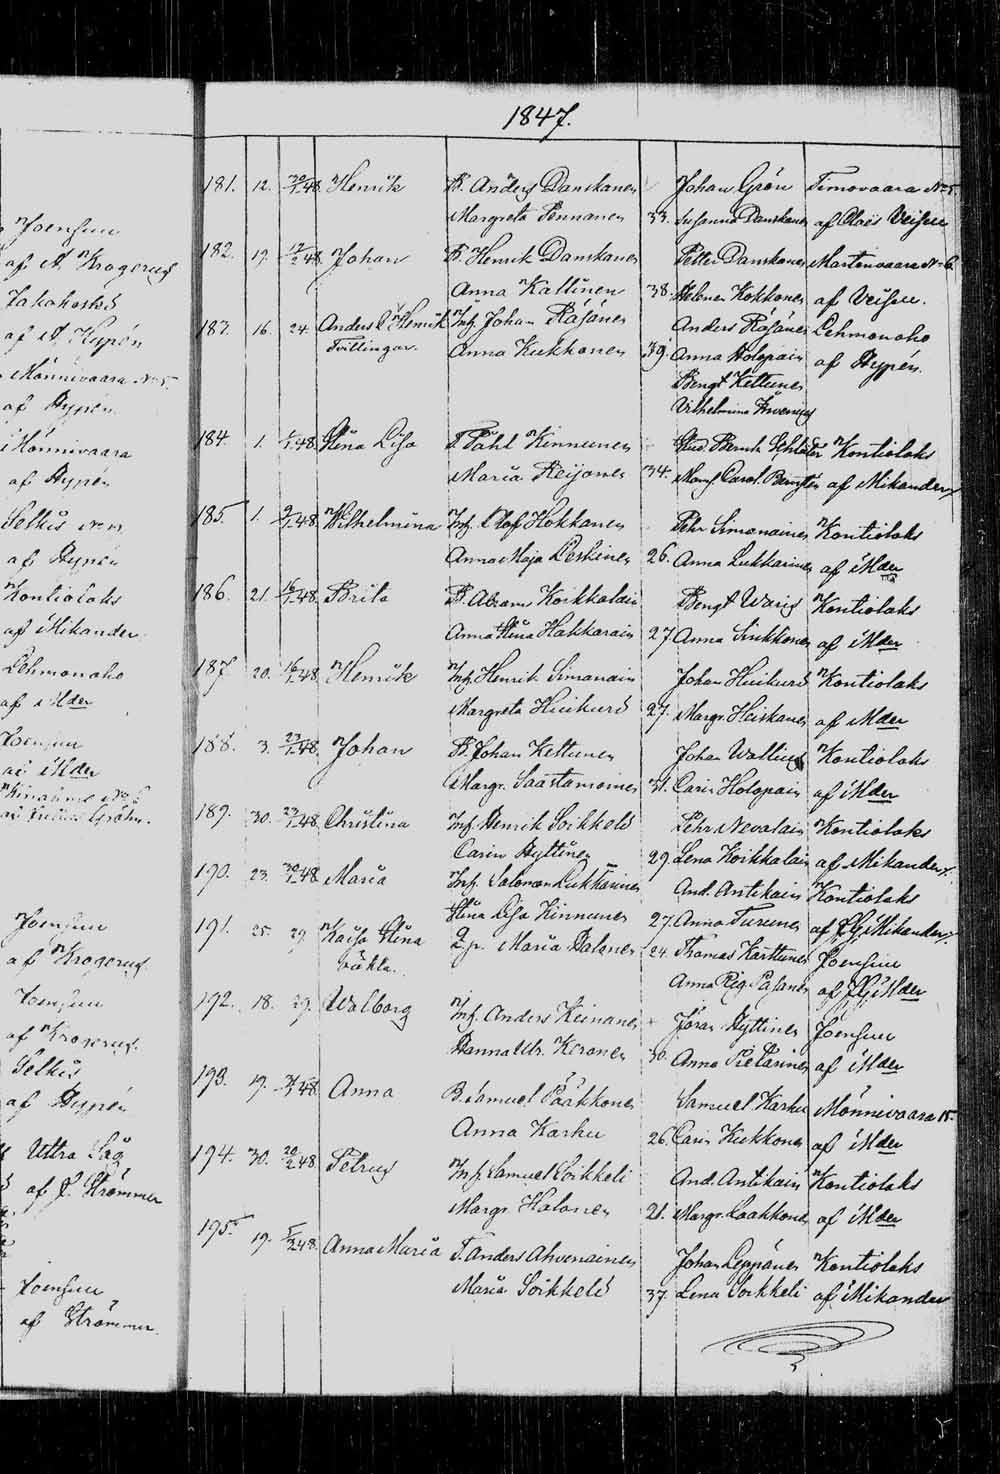 1847.
Joensuu
af A. Krogerus
Jakokoski
af A. Hypén
Mönnivaara No 5.
af Hypén
Mönnivaara
af Hypén
Selkis
af Hypén
Kontiolaks
af Mikander
Lehmonaho
af Mder
Joensuu
af Mder
Joensuu
af Krogerus
Joensuu
af Krogerus
Selkis
af Hypén
Uttra Såg
af J. Strömmer
Joensuu
af Strömmer.
181. 12. 30/1 48. Henrik B. Anders Danskanen Johan Grön Timovaara No 5.
Margreta Pennanen 33. Susanna Danskanen af Cloës Veisuu
182. 19. 12/2 48. Johan B. Henrik Danskanen Petter Danskanen Martonvaara No 6.
Anna Kallinen 38. Helena Kokkonen af Veisuu.
183. 16. 24. Anders & Henrik Inh. Johan Räsänen Anders Räsänen Lehmonaho
Tvillingar. Anna Kukkonen 39. Anna Holopain af Hypén.
Bengt Kettunen
Vilhelmina Arvenius
184. 1. 48. Stina Lisa T. Påhl Kinnunen Stud. Bernh. Schlöter Kontiolaks
Maria Reijonen 34. Mams. Carol. af Mikander
185. 1. 9/1 48. Wilhelmina Inh. Olof Hokkanen Pehr Simonainen Kontiolaks
Anna Maja Leskinen 26. Anna Lukkarinen af Mder
186. 21. 16/1 48. Brita B. Abram Koikkalain Bengt Waris Kontiolaks
Anna Stina Hakkarain 27. Anna Sinkkonen af Mder
187. 20. 16/1 48. Henrik Inh. Henrik Simanain Johan Huikuri Kontiolaks
Margreta Huikuri 27. Margr. Heiskanen af Mder
188. 3. 23/1 48. Johan B. Johan Kettunen Johan Wallius Kontiolaks
Margr. Saastamoinen 31. Carin Holopain af Mder
189. 30. 23/1 48. Christina Inh. Henrik Soikkeli Pehr Nevalain Kontiolaks
Carin Hyttinen 29. Lena Koikkalain af Mikander.
190. 23. 30/1 48. Maria Inh. Salomon Lukkarinen And. Antikain Kontiolaks
Stina Lisa Kinnunen 27. Anna Turunen af J.G. Mikander.
191. 25. 29. Kaisa Stina Qp. Maria Halonen 24. Thomas Karttunen Joensuu
oäkta. Anna Reg. Pasanen af J.G. Mder
192. 18. 29. Walborg Inh. Anders Keinanen Jöran Hyttinen Joensuu
Hanna Ulr. Koronen 30. Anna Pietarinen af Mder
193. 19. 48. Anna B. Samuel Pääkkonen Samuel Karhu Mönnivaara 15.
Anna Karhu 26. Carin Kukkonen af Mder
194. 30. 20/2 48. Petrus Inh. Samuel Soikkeli And. Antikain Kontiolaks
Margr. Halonen 21. Margr. Laakkonen af Mder
195. 19. 48. Anna Maria T. Anders Ahvenainen Johan Leppänen Kontiolaks
Maria Soikkeli 37. Lena Soikkeli af Mikander